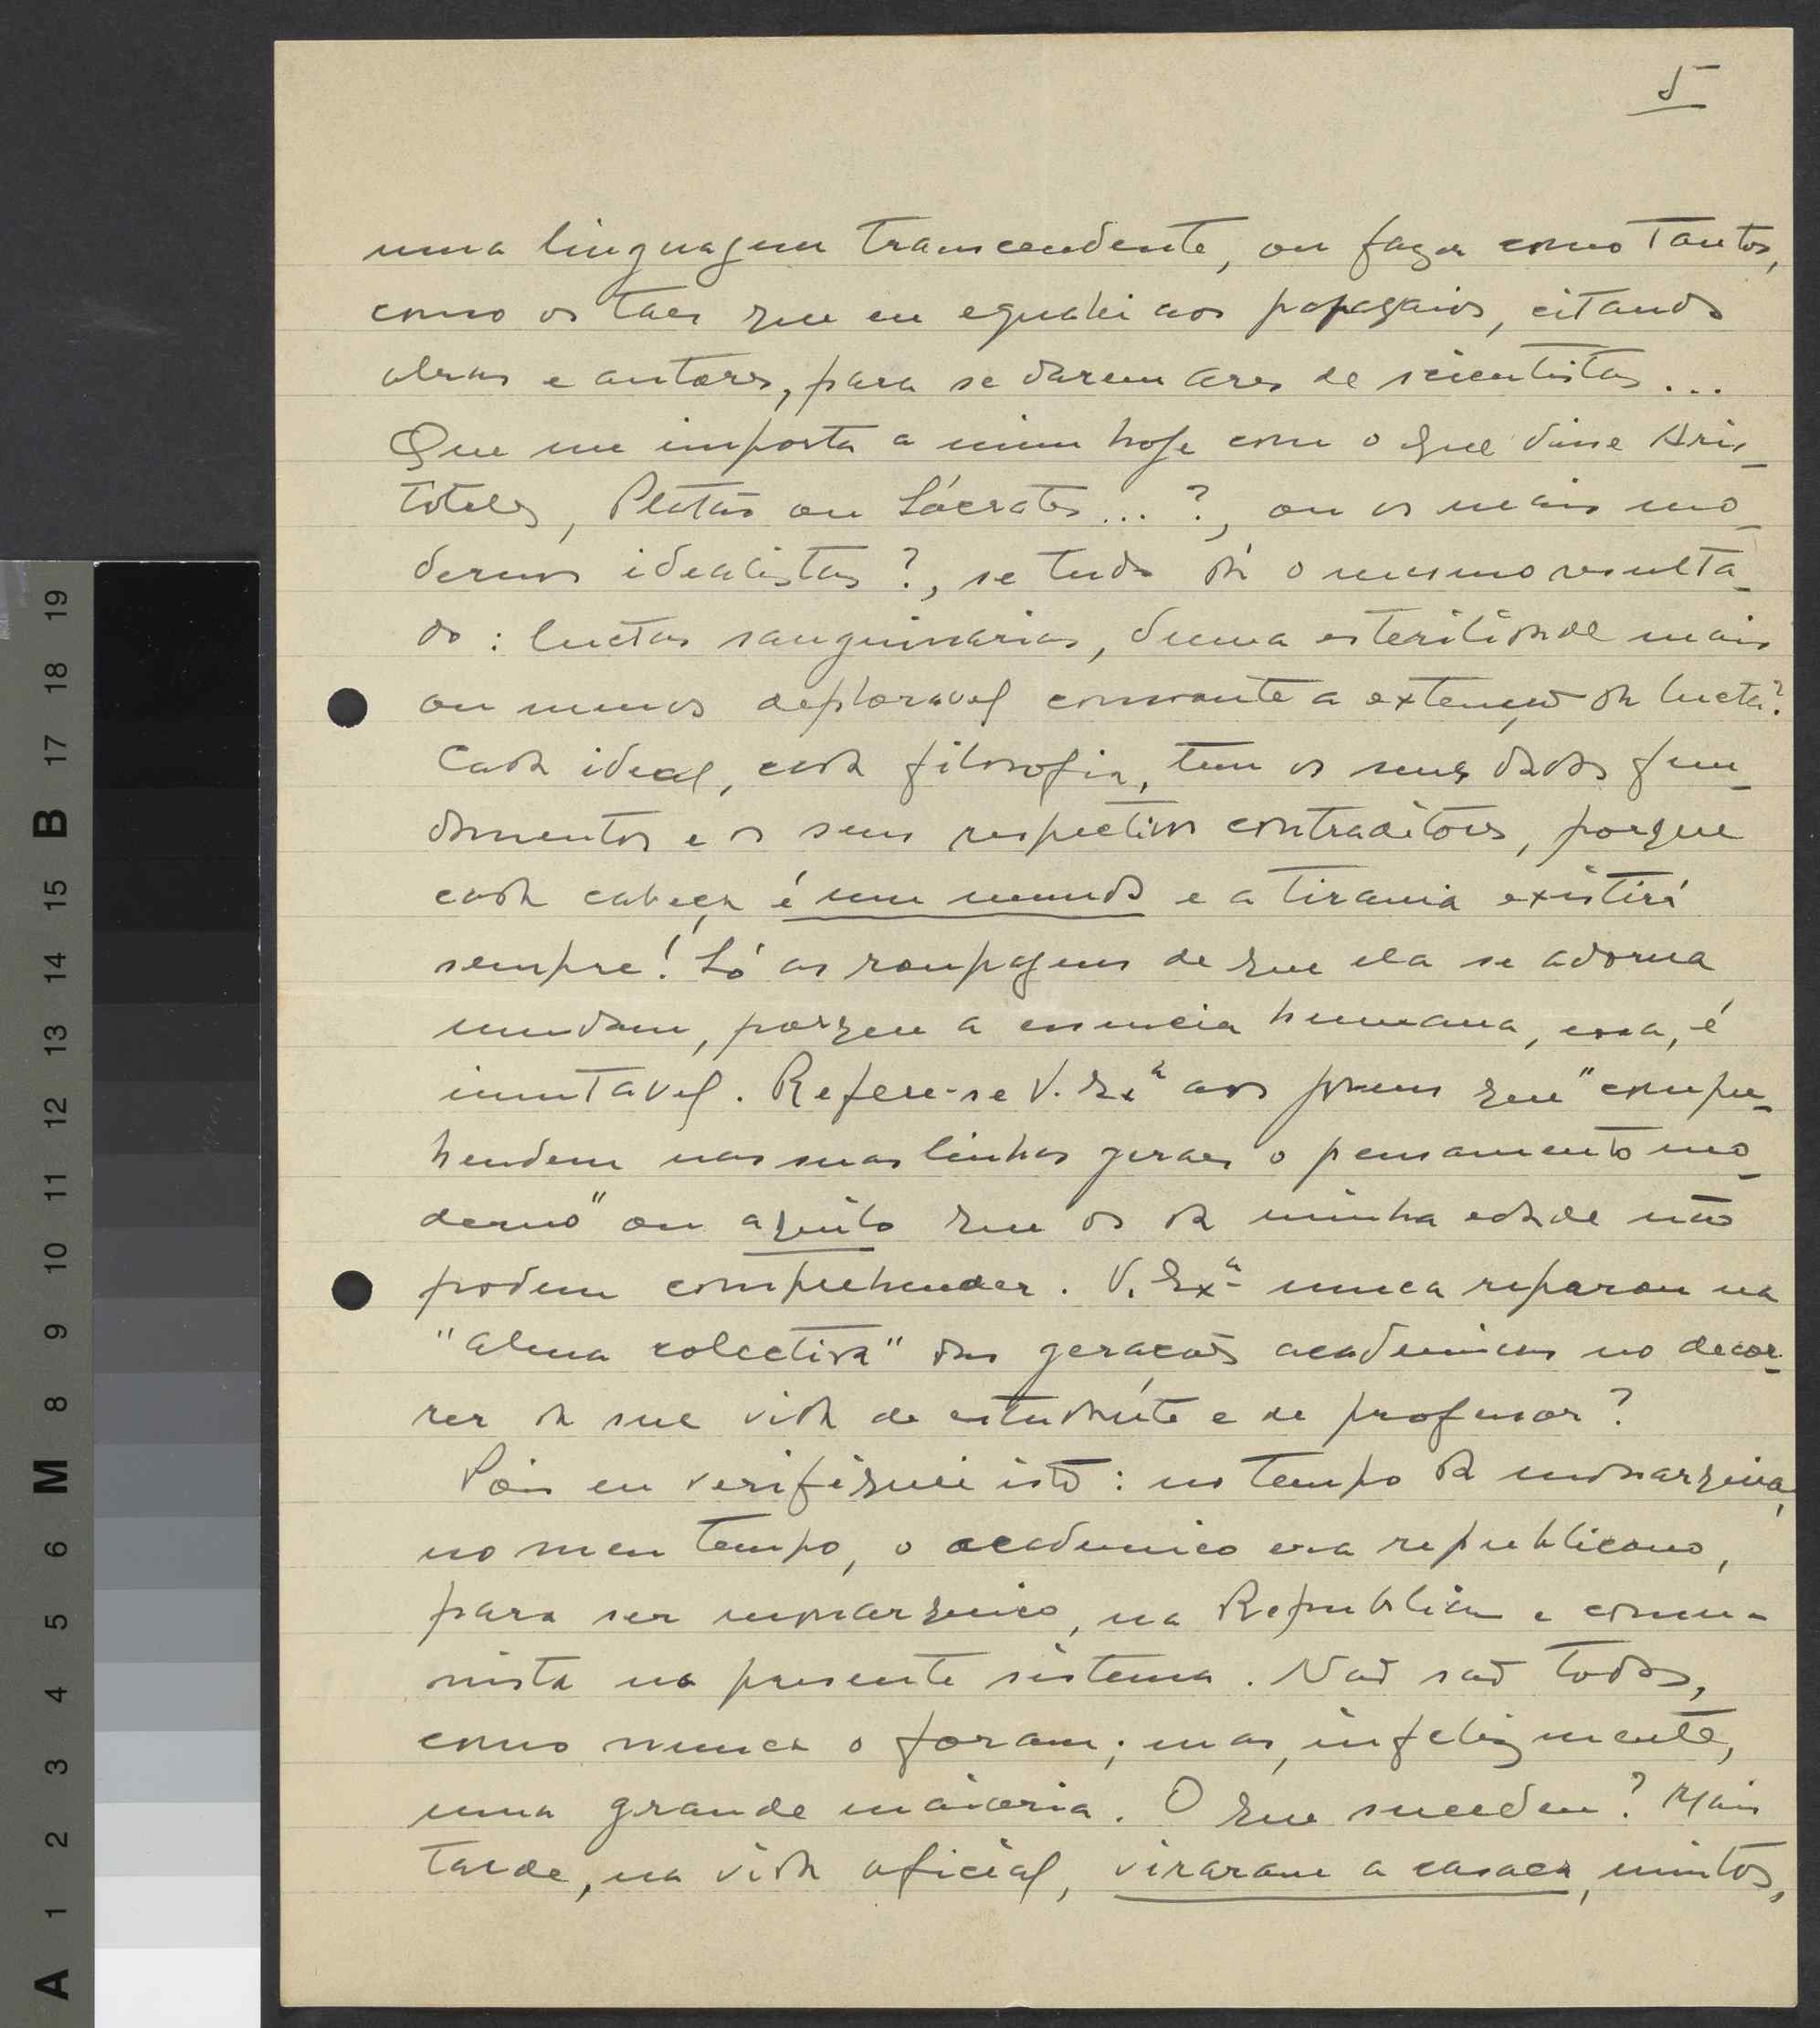 5
uma linguagem transcendente, ou faça como tantos,
como os taes que eu egualei aos papagaios, citando
obras e autores, para se darem ares de scientistas...
Que me importa a mim hoje com o que disse Aris-
toteles, Platão ou Sócrates...?, ou os mais mo-
dernos idealistas?, se tudo dá o mesmo resulta-
do: luctas sanguinarias, duma esterilidade mais
ou menos deploravel consoante a extenção da lucta?
Cada ideal, cada filosofia, tem os seus dados fun-
damentos e os seus respectivos contraditores, porque
cada cabeça é um mundo e a tirania existirá
sempre! Só as roupagens de que ela se adorna
mudam, porque a essencia humana, essa, é
imutavel. Refere-se V. Exª aos jovens que "compre-
hendem nas suas linhas geraes o pensamento mo-
derno" ou aquilo que os da minha edade não
podem comprehender. V. Exª nunca reparou na
"alma colectiva" das gerações academicas no decor-
rer da sua vida de estudante e de professor?
Pois eu verifiquei isto: no tempo da monarquia,
no meu tempo, o academico era republicano,
para ser monarquico, na Republica e comu-
nista no presente sistema. Não são todos,
como nunca o foram; mas, infelizmente,
uma grande maioria. O que sucedeu? Mais
tarde, na vida oficial, viraram a casaca, muitos,